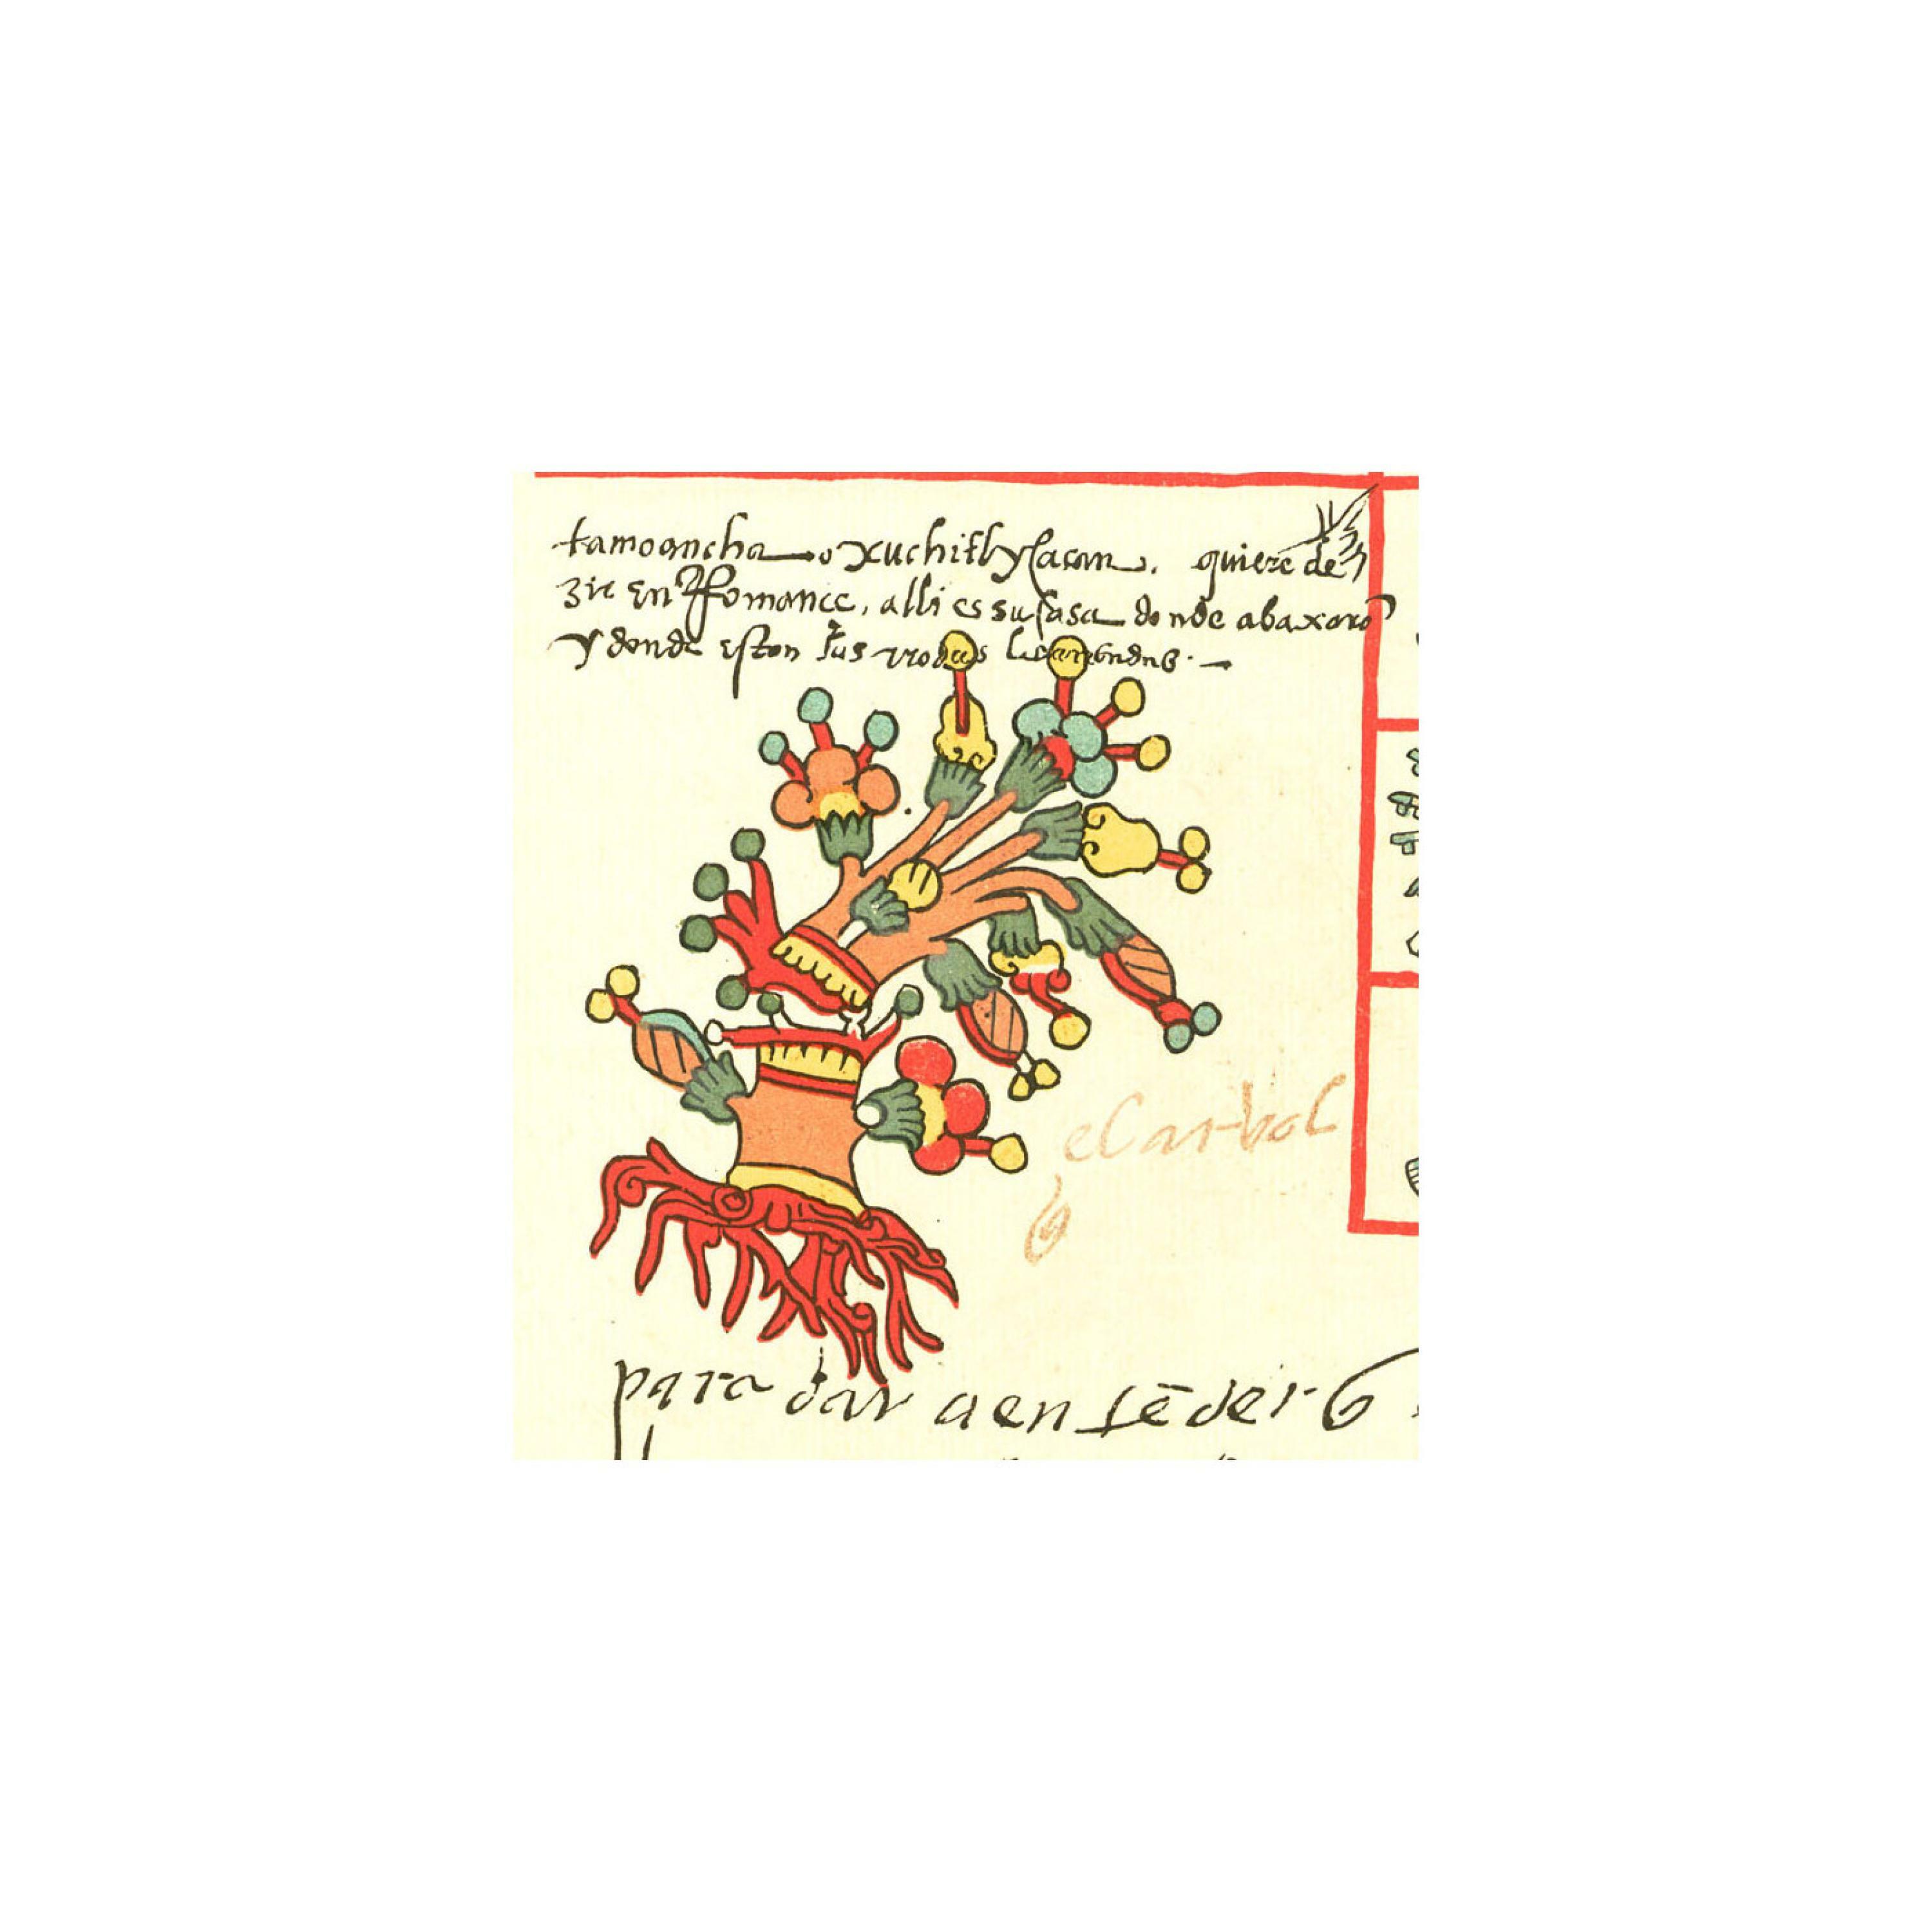 tamoancha o xuchitlycacan. quiere de
zir en Romance, alli es su casa donde abaxarō
y donde estan sus
el arbol
para dar a entēder